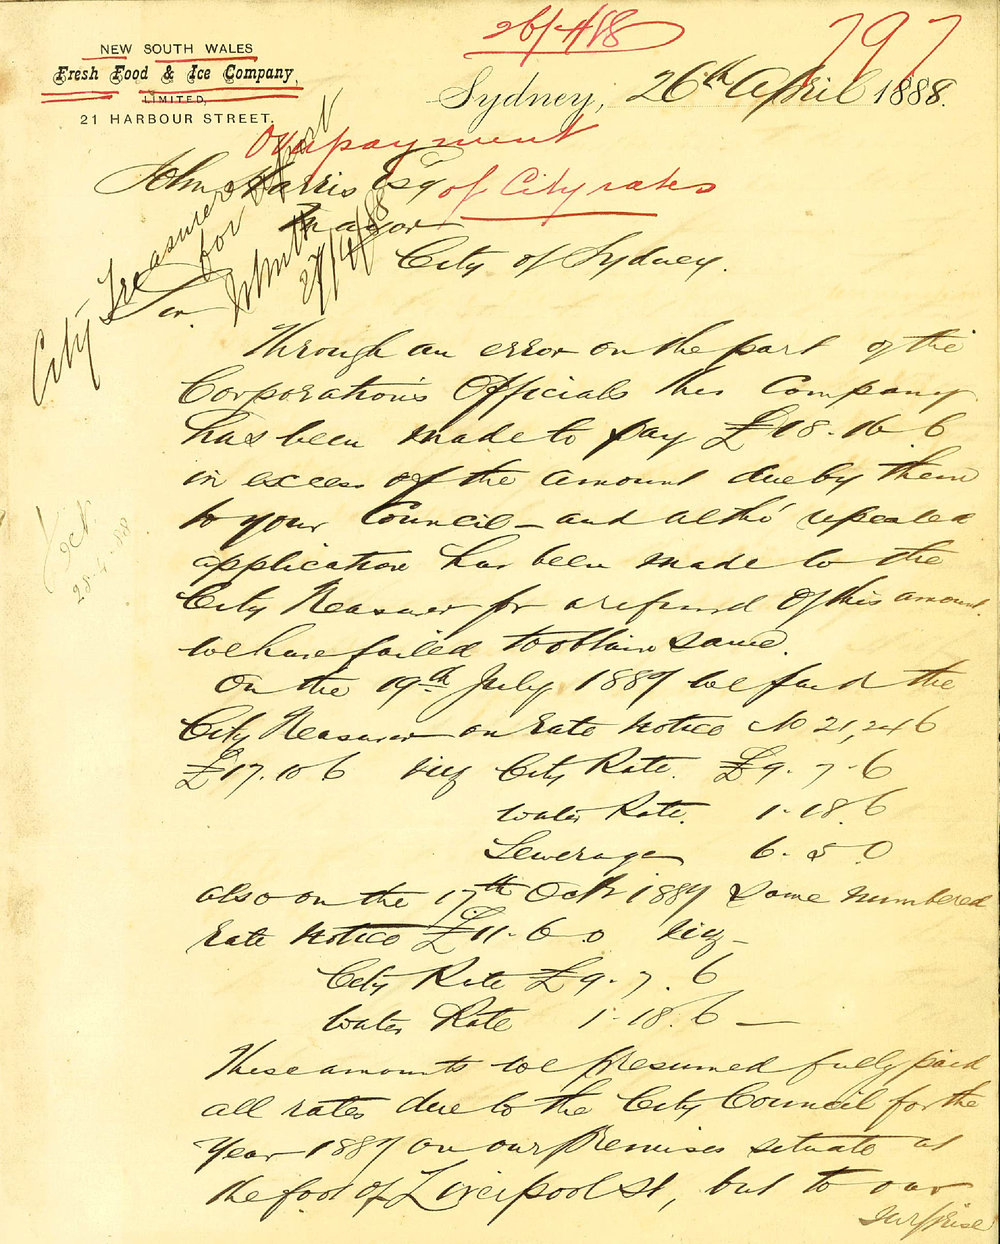 26/4/88
797
NEW SOUTH WALES
Fresh Food & Ice Company,
LIMITED,
21 HARBOUR STREET.
Sydney, 26th April 1888.
Overpayment
of City rates
John Harris Esq
Mayor
City of Sydney.
City Treasurer
for report
27/4/88
Sir.
Through an error on the part of the
Corporation's Officials this Company
has been made to pay £18.16.6
in excess of the amount due by them
to your Council – and altho' repeated
application has been made to the
City Treasurer for a refund of this amount
we have failed to obtain same.
On the 19th July 1887 we paid the
City Treasurer on Rate Notice No 21,246
£17.10.6 viz City Rate. £9.7.6
Water Rate. 1.18.6
Sewerage 6.5.0
also on the 17th Octr 1887 Same numbered
Rate Notice £11.6.0 viz –
City Rate £9.7.6
Water Rate 1.18.6 –
These amounts we presumed fully paid
all rates due to the City Council for the
Year 1887 on our premises situate at
the foot of Liverpool St, but to our
surprise
28.4.88